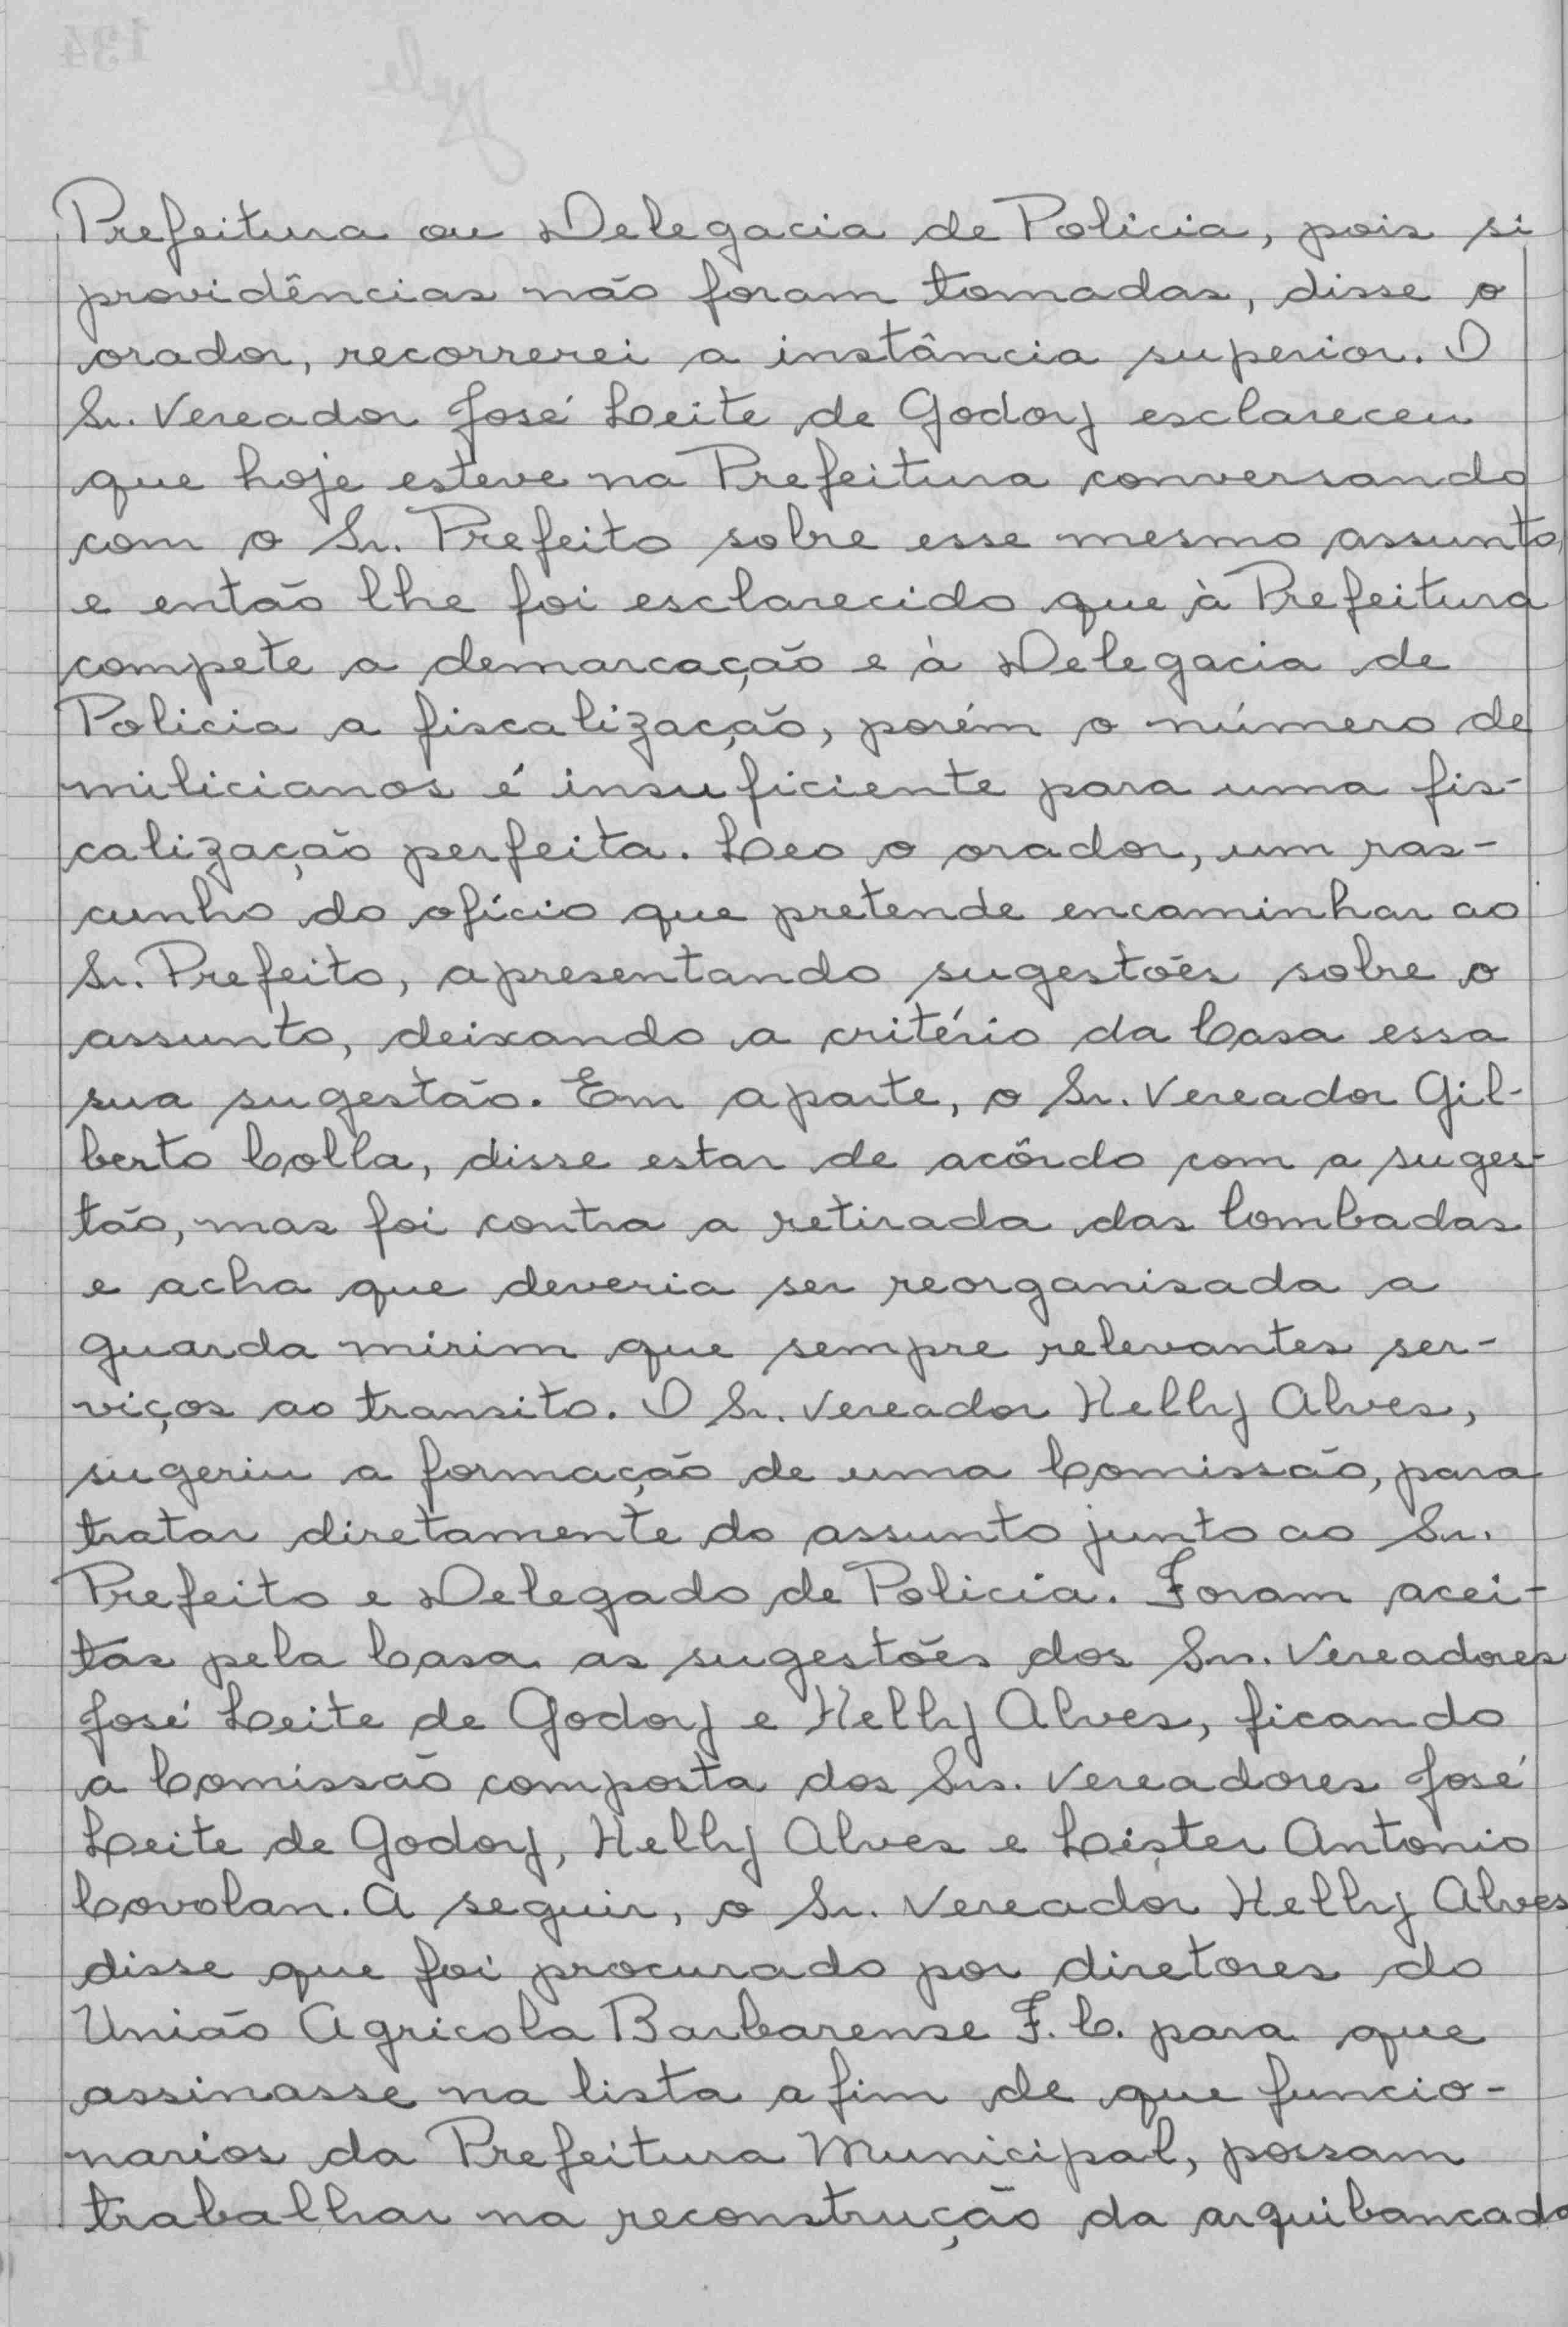 Prefeitura ou Delegacia de Policia, pois si
providências não foram tomadas, disse o
orador, recorrerei a instância superior. O
Sr. Vereador José Leite de Godoy esclareceu
que hoje esteve na Prefeitura conversando
com o Sr. Prefeito sobre esse mesmo assunto,
e então lhe foi esclarecido que à Prefeitura
compete a demarcação e à Delegacia de
Policia a fiscalização, porém o número de
milicianos é insuficiente para uma fis-
calização perfeita. Leo o orador, um ras-
cunho do ofício que pretende encaminhar ao
Sr. Prefeito, apresentando sugestões sobre o
assunto, deixando a critério da Casa essa
sua sugestão. Em aparte, o Sr. Vereador Gil-
berto Colla, disse estar de acôrdo com a suges-
tão, mas foi contra a retirada das lombadas
e acha que deveria ser reorganisada a
guarda mirim que sempre relevantes ser-
viços ao transito. O Sr. Vereador Helly Alves,
sugeriu a formação de uma Comissão, para
tratar diretamente do assunto junto ao Sr.
Prefeito e Delegado de Policia. Foram acei-
tas pela Casa as sugestões dos Srs. Vereadores
José Leite de Godoy e Helly Alves, ficando
a Comissão composta dos Srs. Vereadores José
Leite de Godoy, Helly Alves e Lister Antonio
Covolan. A seguir, o Sr. Vereador Helly Alves
disse que foi procurado por diretores do
União Agricola Barbarense F.C. para que
assinasse na lista a fim de que funcio-
narios da Prefeitura Municipal, possam
trabalhar na reconstrução da arquibancada